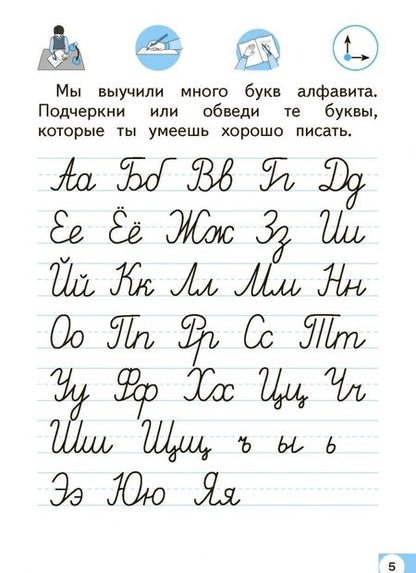 Мы выучили много букв алфавита.
Подчеркни или обведи те буквы,
которые ты умеешь хорошо писать.
Аа Бб Вв Гг Дд
Ее Ёё Жж Зз Ии
Йй Кк Лл Мм Нн
Оо Пп Рр Сс Тт
Уу Фф Хх Цц Чч
Шш Щщ ъ ы ь
Ээ Юю Яя
5